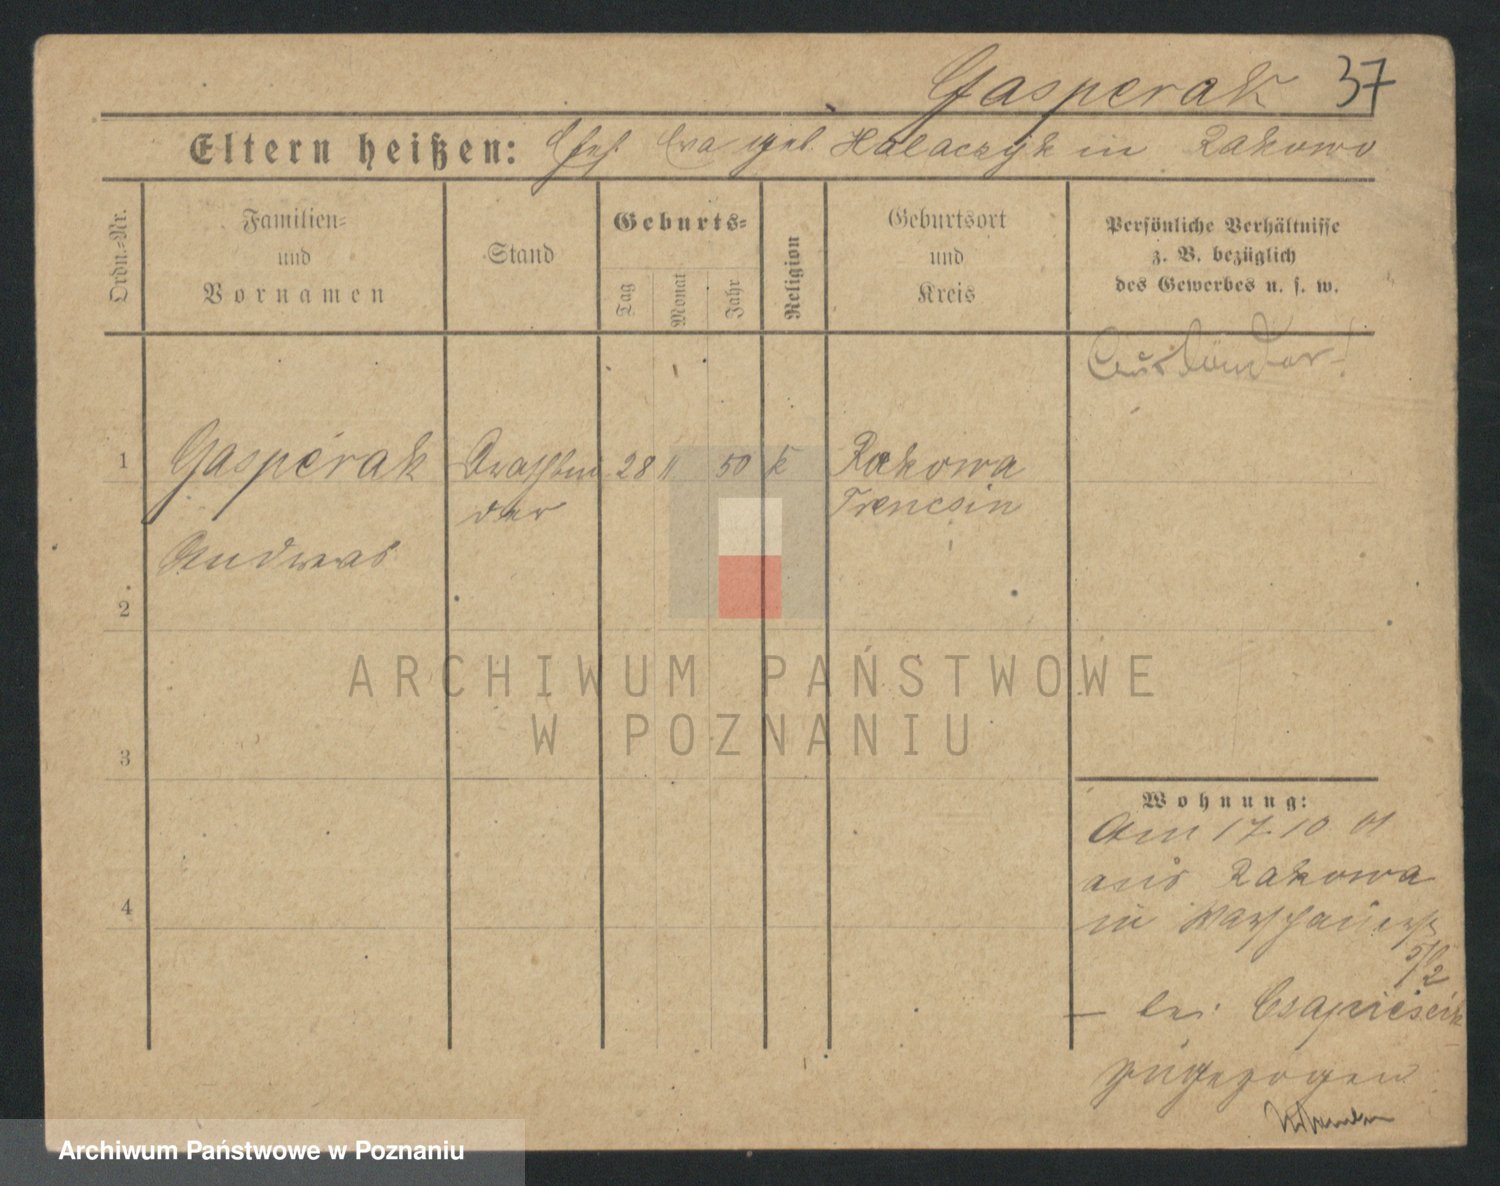 Gasperak 37
Eltern heißen: Ehef. Eva geb. Halaczyk in Rakowo
Ordn.=Nr.
Familien=
und
Vornamen
Stand
Geburts=
Tag Monat Jahr
Religion
Geburtsort
und
Kreis
Persönliche Verhältnisse
z. B. bezüglich
des Gewerbes u. s. w.
Ausländer!
1 Gasperak Drathbin 28 11 50 K Rakowa
der Trencsin
Andreas
2
3
4
Wohnung:
Am 17.10 01
aus Rakowa
in Warschauerst
5/6
2
– bei
zugezogen
ARCHIWUM PAŃSTWOWE
W POZNANIU
Archiwum Państwowe w Poznaniu